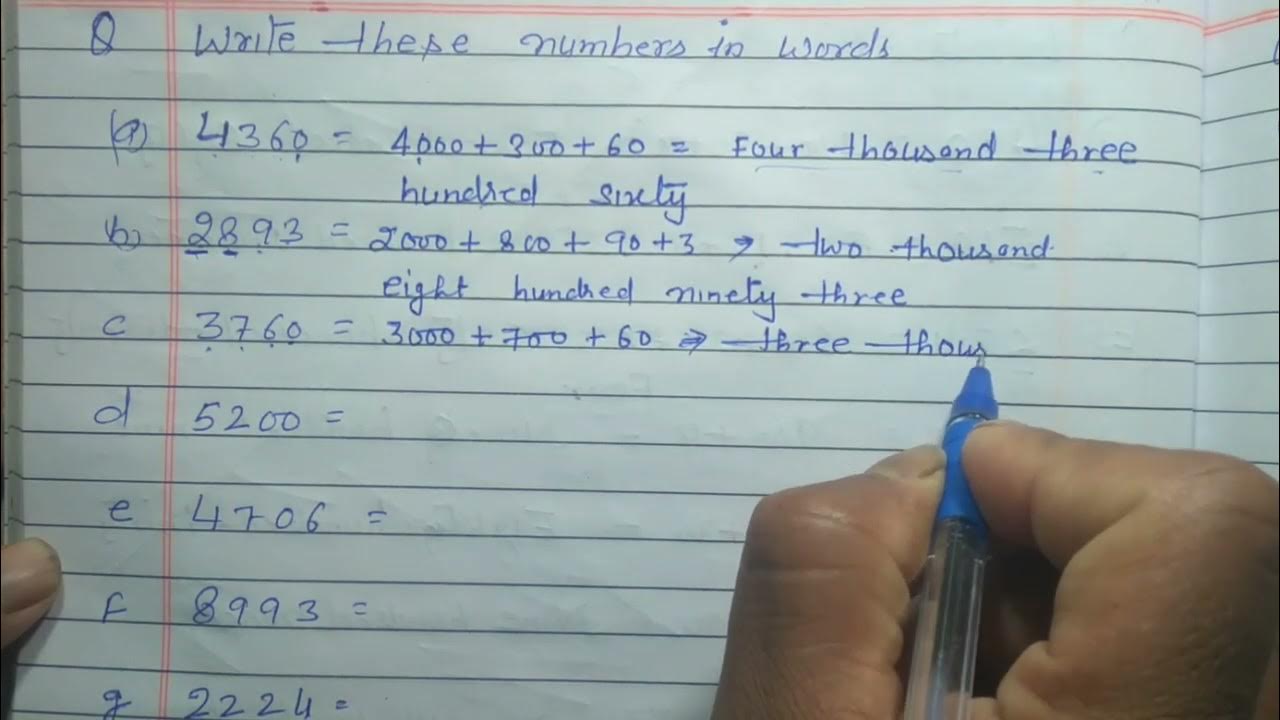 Q Write these numbers in words
(a) 4360 = 4000 + 300 + 60 = Four thousand three
hundred sixty
b) 2893 = 2000 + 800 + 90 + 3 → two thousand
eight hundred ninety three
c 3760 = 3000 + 700 + 60 ⇒ three thous
d 5200 =
e 4706 =
F 8993 =
g 2224 =